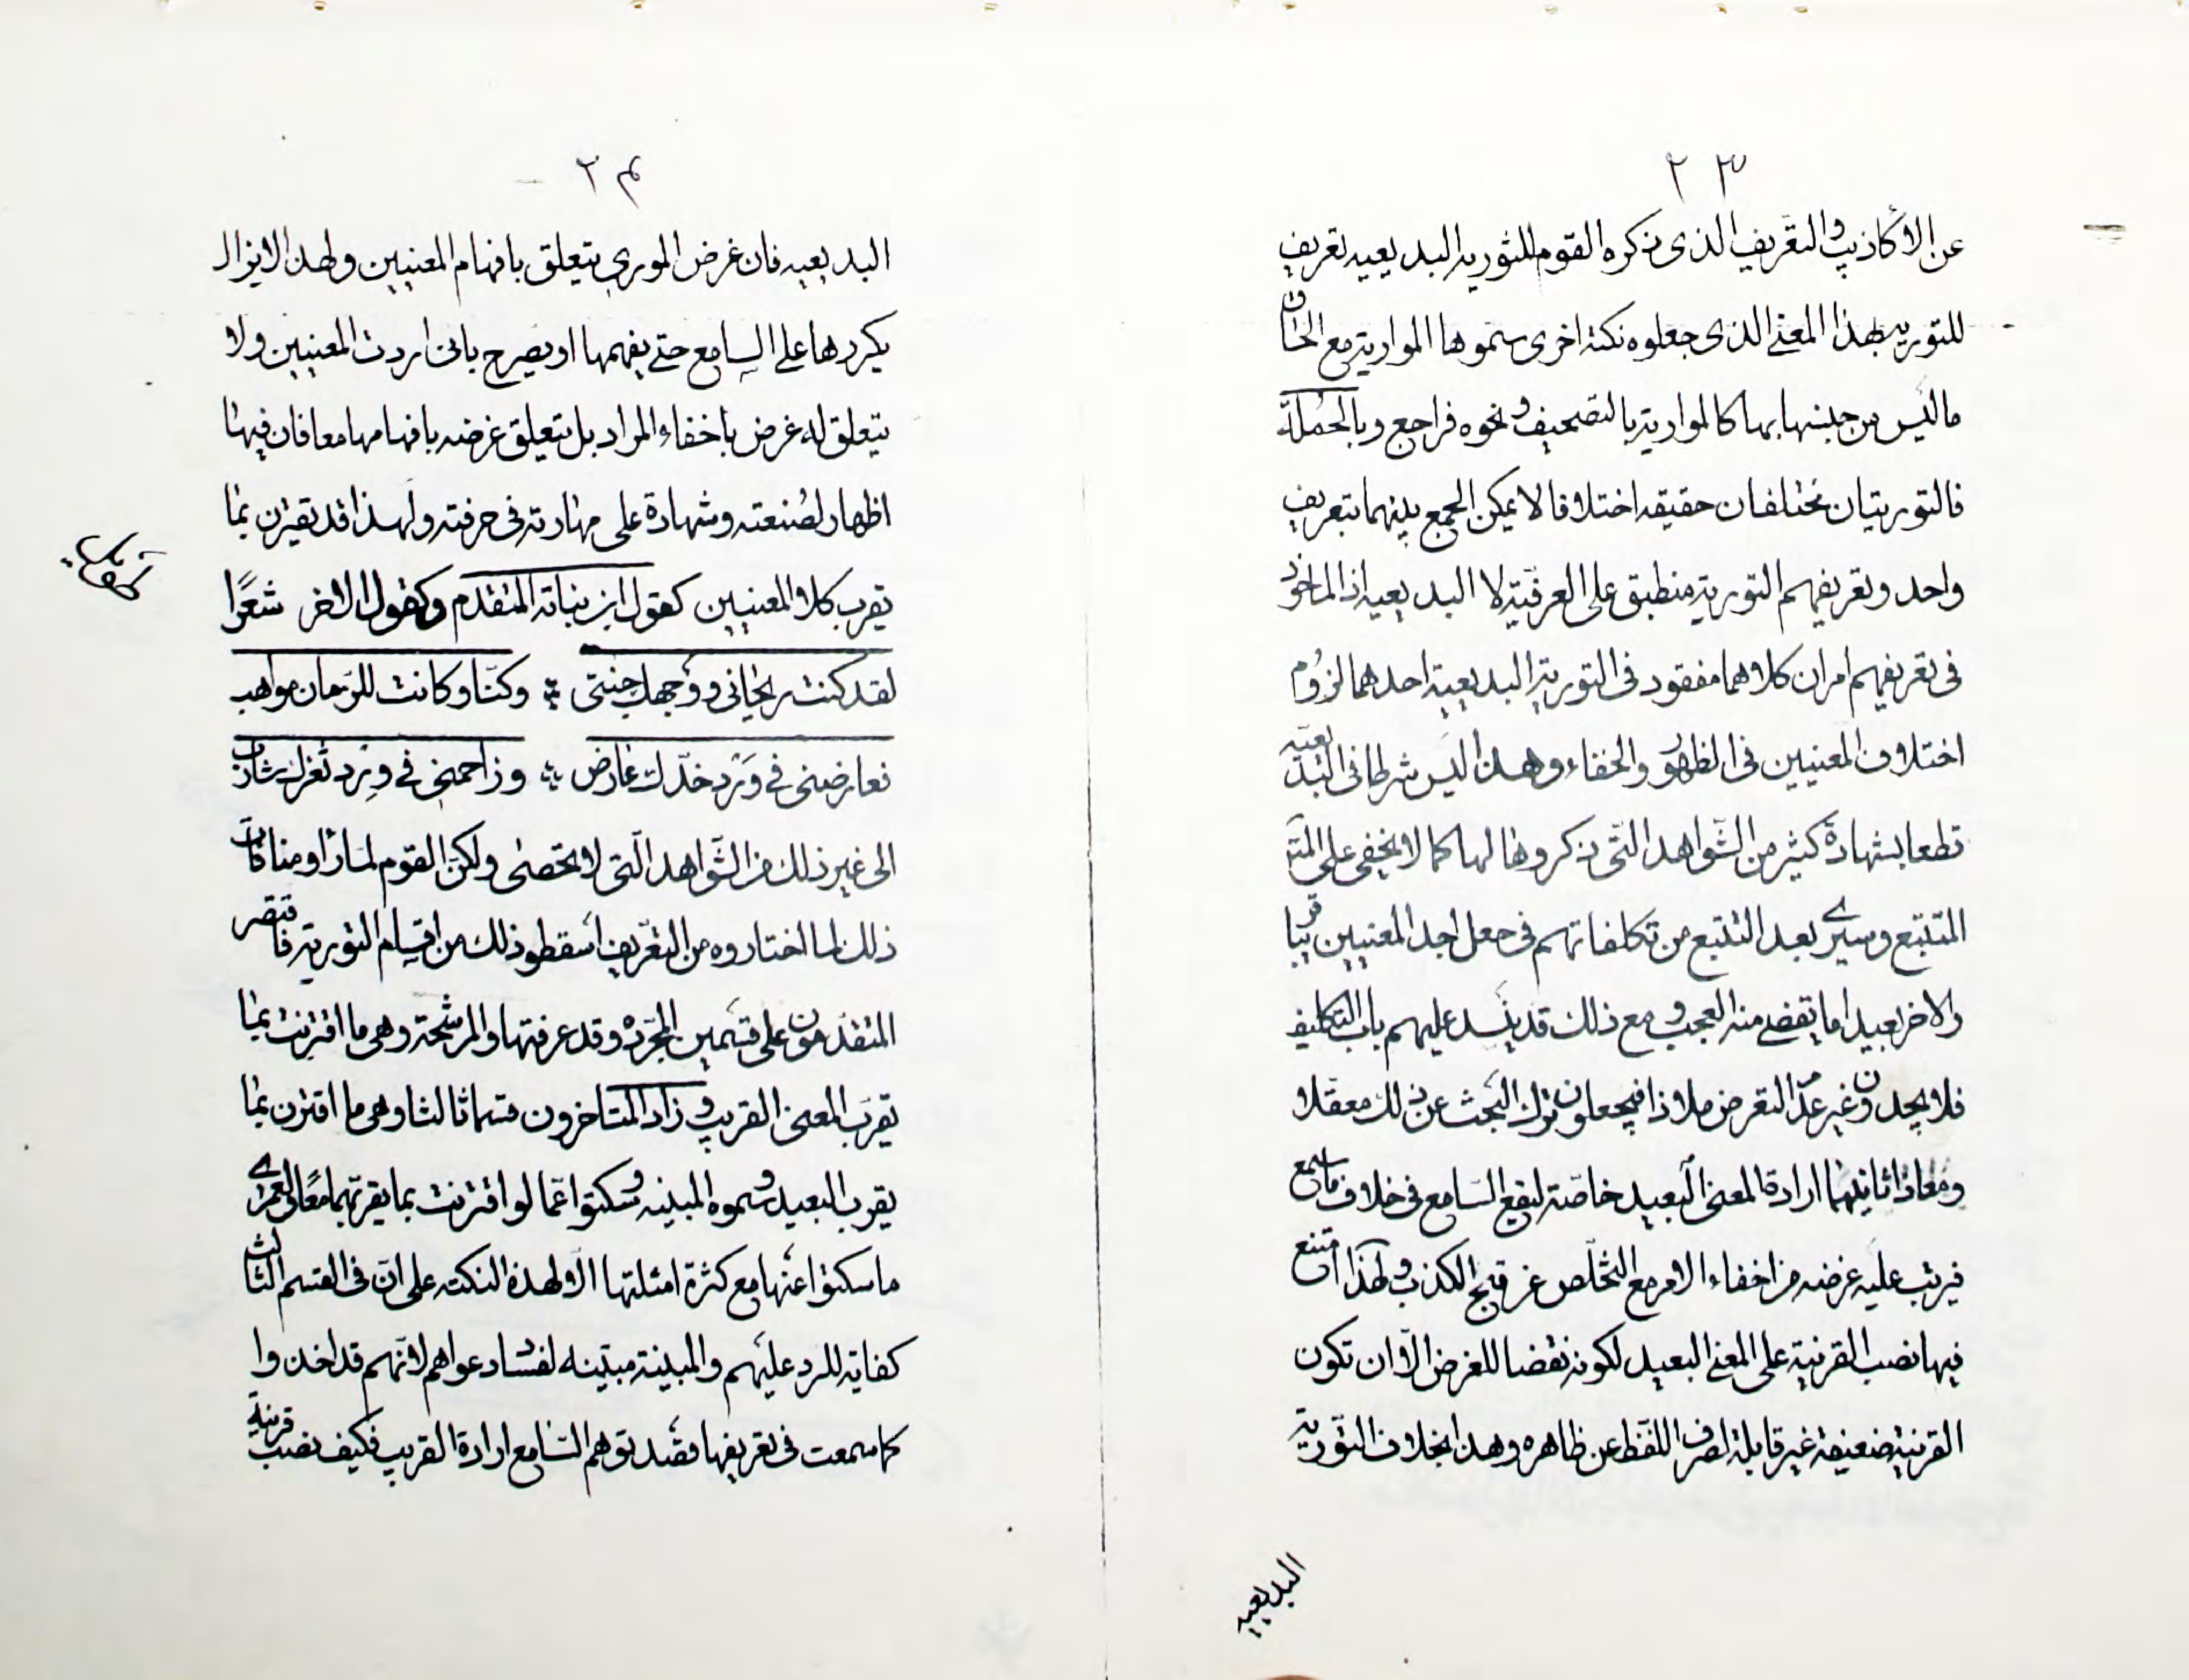 ٢٣
عن الأكاذيب والتعريف الذى ذكره القوم للتورية البديعية تعريف
للتورية بهذا المعنى الذى جعلوه نكتة اخرى سموها المواربة مع الحاق
ما ليس من جنسها بها كالمواربة بالتصحيف ونحوه فراجع وبالجملة
فالتوريتان مختلفتان حقيقة اختلافا لا يمكن الجمع بينهما بتعريف
واحد وتعريفهم التورية منطبق على العرفية لا البديعية اذ الماخوذ
فى تعريفهم امران كلاهما مفقود فى التورية البديعية احدهما لزوم
اختلاف المعنيين فى الظهور والخفاء وهذا ليس شرطا فى البديعية
قطعا بشهادة كثير من الشواهد التى ذكروها لها كما لا يخفى على
المتتبع وسيرى بعد التتبع من تكلفاتهم فى جعل احد المعنيين قريبا
والاخر بعيدا ما يقضى منه العجب ومع ذلك قد ينسد عليهم باب التكليف
فلا يجدون غير عدم التعرض ملاذا فيجعلون ترك البحث عن ذلك معقلا
ومعاذا ثانيهما ارادة المعنى البعيد خاصة ليقع السامع فى خلاف ما سمع
فيرتب عليه غرضه من اخفاء الامر مع التخلص عن قبح الكذب ولهذا امتنع
فيها نصب القرينة على المعنى البعيد لكونه نقضا للغرض الا ان تكون
القرينة ضعيفة غير قابلة لصرف اللفظ عن ظاهره وهذا بخلاف التورية
البديعية
٢٤
البديعية فان غرض المورى يتعلق بافهام المعنيين ولهذا لايزال
يكررها على السامع حتى يفهمها او يصرح بانى اردت المعنيين ولا
يتعلق له غرض باخفاء المراد بل يتعلق غرضه بافهامها معا فان فيها
اظهار لصنعته وشهادة على مهارته فى حرفته ولهذا قد تقترن بما
يقرب كلا المعنيين كقول ابن نباتة المتقدم وكقول الاخر شعرا
لقد كنت ريحانى ووجهك جنتى وكنا وكانت للزمان مواهب
فعارضنى فى ورد خدك عارض وزاحمنى فى ورد ثغرك شارب
الى غير ذلك من الشواهد التى لا تحصى ولكن القوم لما راوا منافات
ذلك لما اختاروه من التعريف اسقطو ذلك من اقسام التورية فاقتصر
المتقدمون على قسمين المجرده وقد عرفتها والمرشحة وهى ما اقترنت بما
يقرب المعنى القريب وزاد المتاخرون قسما ثالثا وهى ما اقترن بما
يقرب البعيد وسموه المبينه وسكتوا عما لو اقترنت بما يقربهما معا ولعمرى
ما سكتوا عنها مع كثرة امثلتها الا لهذه النكتة على ان فى القسم الثالث
كفاية للرد عليهم والمبينة مبينه لفساد دعواهم لانهم قد اخذوا
كما سمعت فى تعريفها قصد توهم السامع ارادة القريب فكيف نصب قرينة